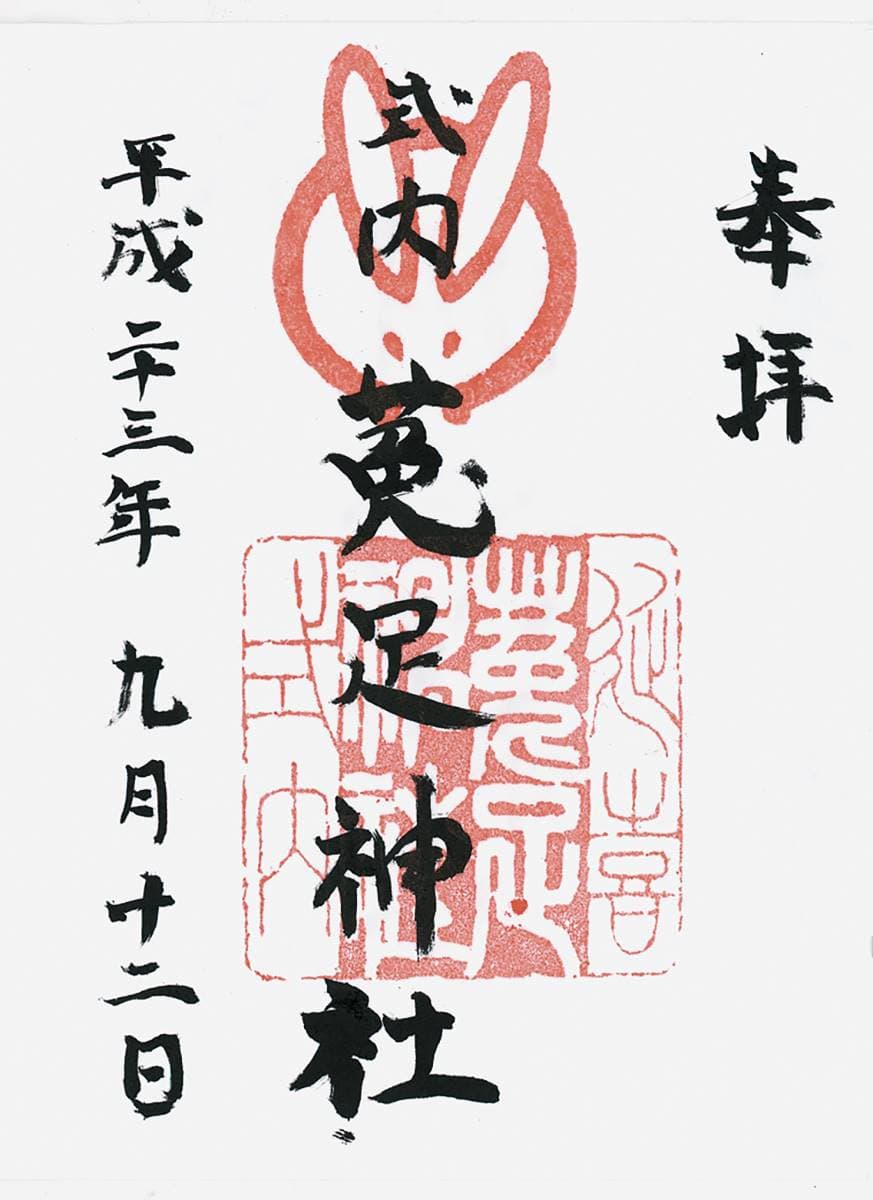 奉拝
式内 菟足神社
延喜
菟足
神社
式内
平成二十三年 九月十二日